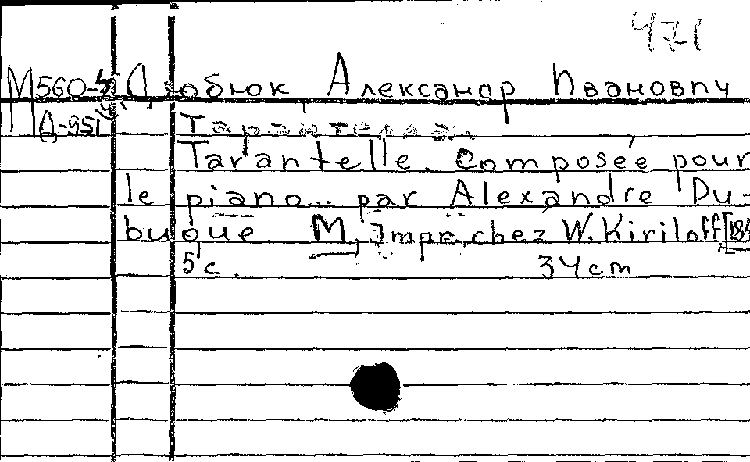 471
М560-4 Дюбюк Александр Иванович
Д-951 Тарантелла.
Tarantelle. Composée pour
le piano... par Alexandre Du-
buque M, Impr. chez W. Kiriloff [184
5 c. 34 cm